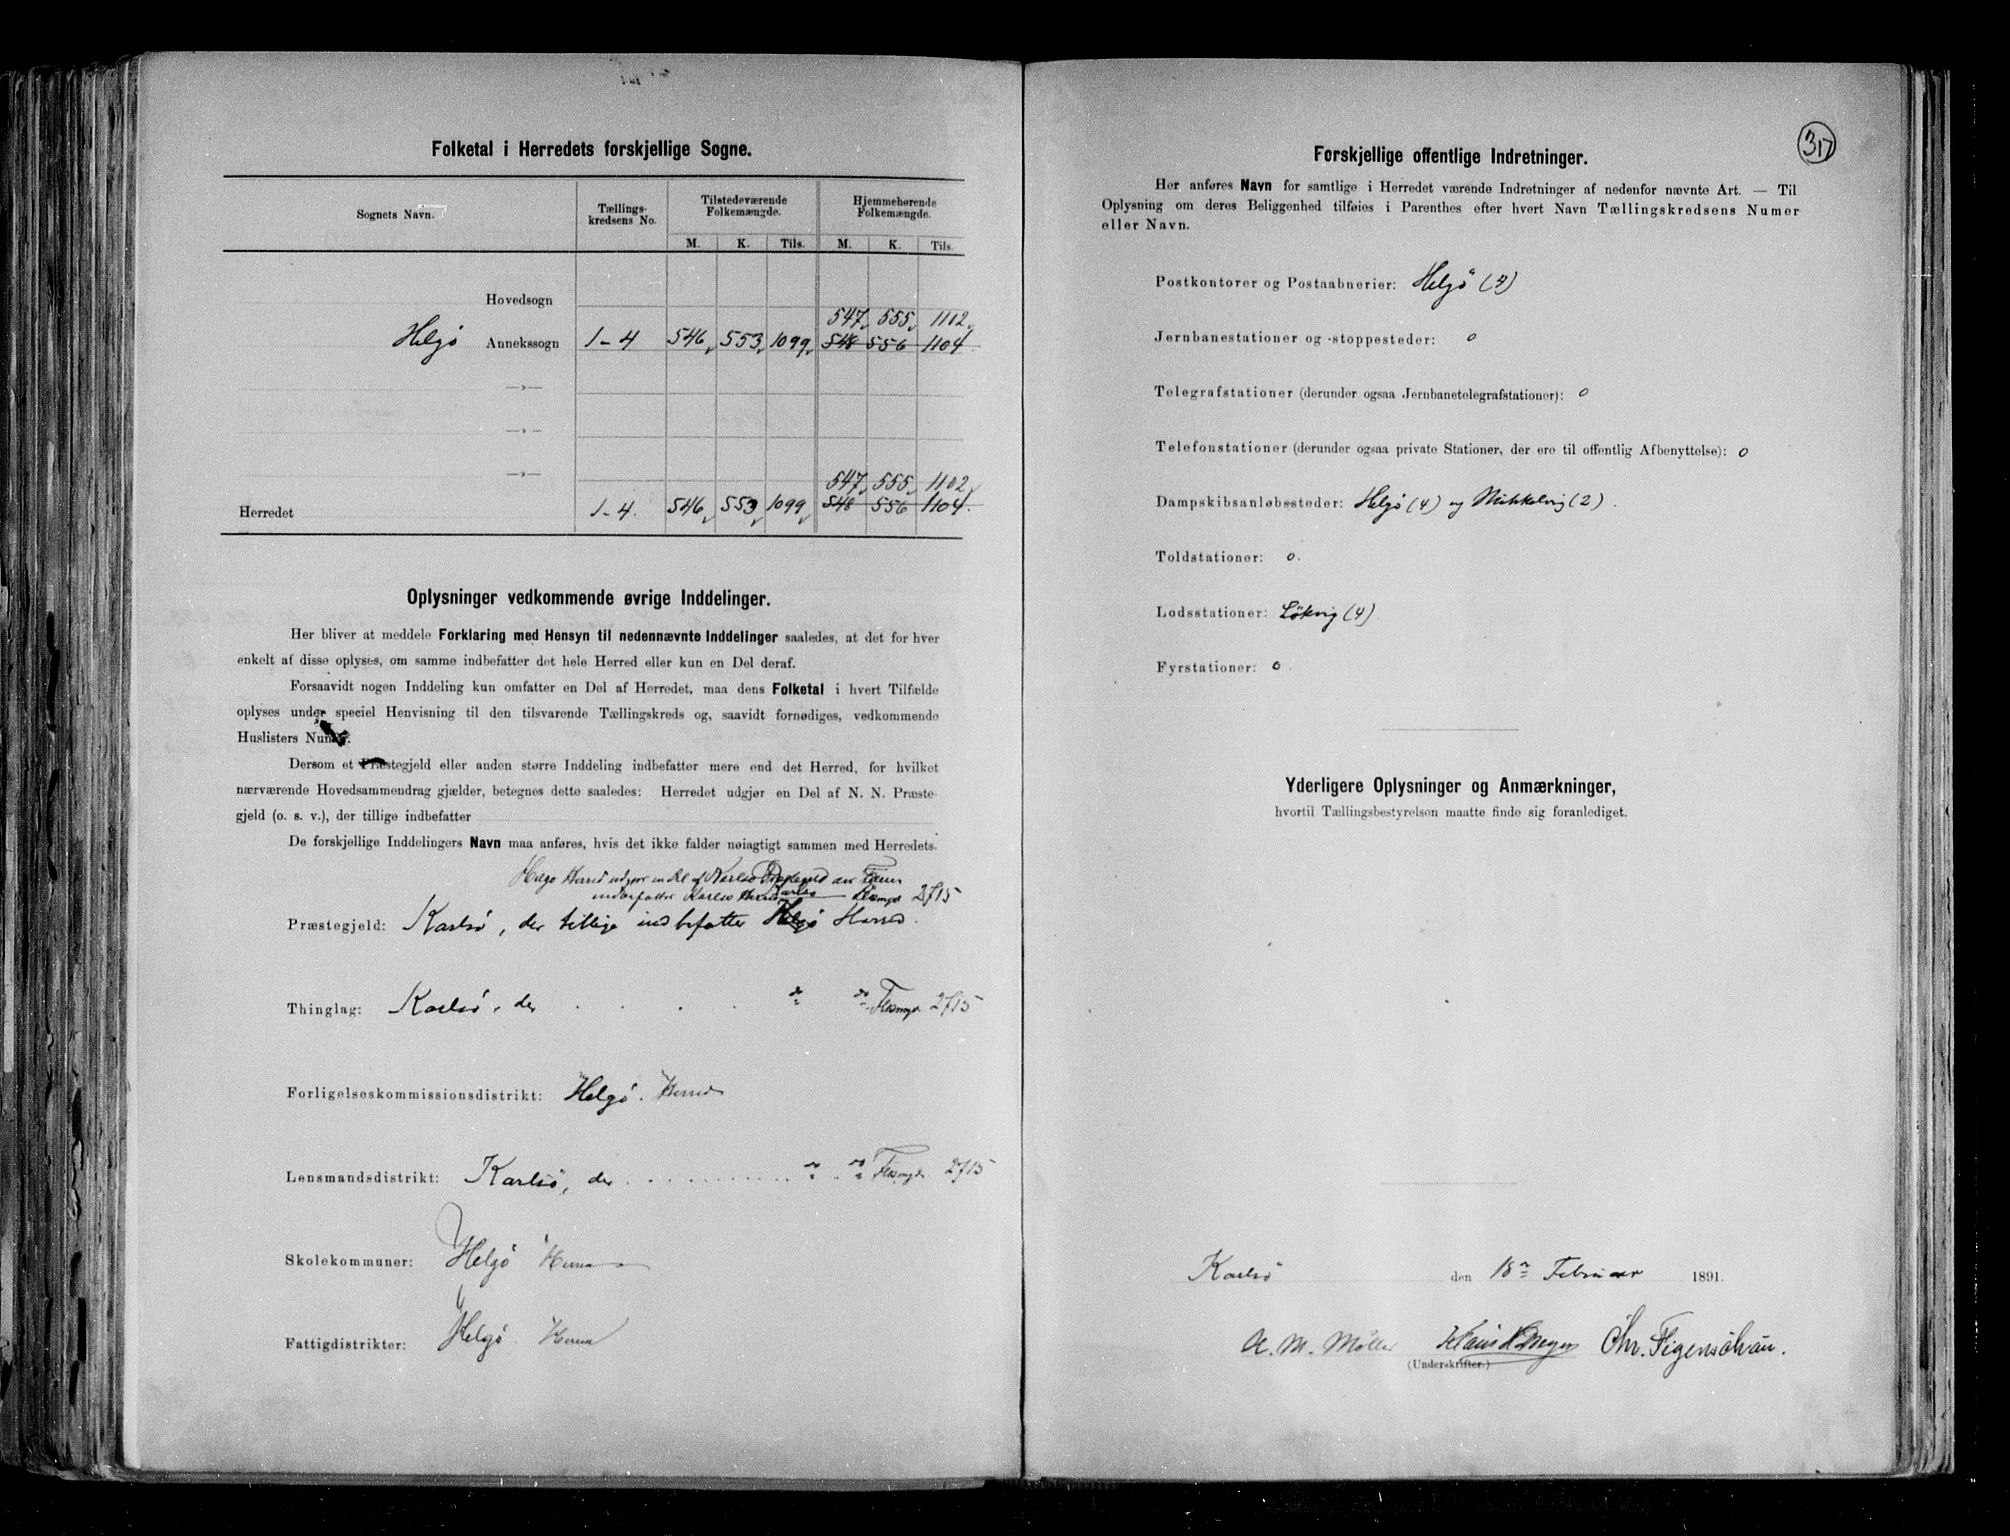 Folketal i Herredets forskjellige Sogne.
Sognets Navn. Tællings-kredsens No. Tilstedeværende Folkemængde. Hjemmehørende Folkemængde.
M. K. Tils. M. K. Tils.
Hovedsogn
547 555 1102
Helgö Annekssogn 1-4 546 553 1099 548 556 1104
—»—
—»—
—»—
547 555 1102
Herredet 1-4. 546 553 1099 548 556 1104
Oplysninger vedkommende øvrige Inddelinger.
Her bliver at meddele Forklaring med Hensyn til nedennævnte Inddelinger saaledes, at det for hver
enkelt af disse oplyses, om samme indbefatter det hele Herred eller kun en Del deraf.
Forsaavidt nogen Inddeling kun omfatter en Del af Herredet, maa dens Folketal i hvert Tilfælde
oplyses under speciel Henvisning til den tilsvarende Tællingskreds og, saavidt fornødiges, vedkommende
Huslisters Numer.
Dersom et Præstegjeld eller anden større Inddeling indbefatter mere end det Herred, for hvilket
nærværende Hovedsammendrag gjælder, betegnes dette saaledes: Herredet udgjør en Del af N. N. Præste-
gjeld (o. s. v.), der tillige indbefatter
De forskjellige Inddelingers Navn maa anføres, hvis det ikke falder nøiagtigt sammen med Herredets.
Helgö Herred udgjør en Del af Karlsö Præstegjeld der
indbefatter Karlsö 2715
Præstegjeld: Karlsö, der tillige indbefatter Helgö Herred.
Thinglag: Karlsö, der 2715
Forligelseskommissionsdistrikt: Helgö. Herred
Lensmandsdistrikt: Karlsö, der 2715
Skolekommuner: Helgö Herred
Fattigdistrikter: Helgö. Herred
317
Forskjellige offentlige Indretninger.
Her anføres Navn for samtlige i Herredet værende Indretninger af nedenfor nævnte Art. — Til
Oplysning om deres Beliggenhed tilføies i Parenthes efter hvert Navn Tællingskredsens Numer
eller Navn.
Postkontorer og Postaabnerier: Helgö (4)
Jernbanestationer og -stoppesteder: 0
Telegrafstationer (derunder ogsaa Jernbanetelegrafstationer): 0
Telefonstationer (derunder ogsaa private Stationer, der ere til offentlig Afbenyttelse): 0
Dampskibsanløbssteder: Helgö (4) og Mikkelvig (2).
Toldstationer: 0.
Lodsstationer: Lökvig (4)
Fyrstationer: 0.
Yderligere Oplysninger og Anmærkninger,
hvortil Tællingsbestyrelsen maatte finde sig foranlediget.
Karlsö den 18de Februar 1891.
A. M. Möller Hans Chr. Figenschau.
(Underskrifter.)